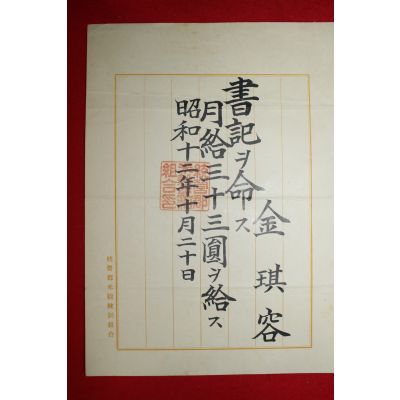 金琪容
書記ヲ命ス
月給三十三圓ヲ給ス
昭和十二年十月二十日